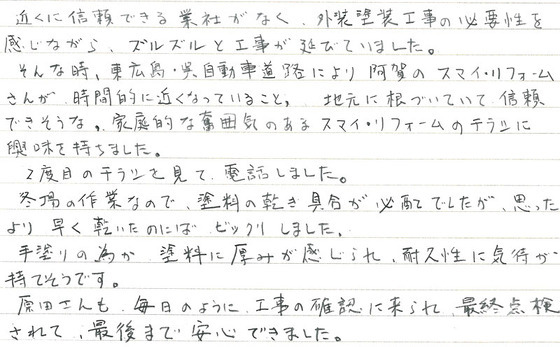 近くに信頼できる業社がなく、外装塗装工事の必要性を
感じながら、ズルズルと工事が延びていました。
そんな時、東広島・呉自動車道路により阿賀のスマイ・リフォーム
さんが、時間的に近くなっていること。地元に根づいていて信頼
できそうな、家庭的な雰囲気のあるスマイ・リフォームのチラシに
興味を持ちました。
2度目のチラシを見て、電話しました。
冬場の作業なので、塗料の乾き具合が心配でしたが、思った
より早く乾いたのにはビックリしました。
手塗りの為か、塗料に厚みが感じられ、耐久性に気待が
持てそうです。
原田さんも、毎日のように、工事の確認に来られ、最終点検
されて、最後まで安心できました。